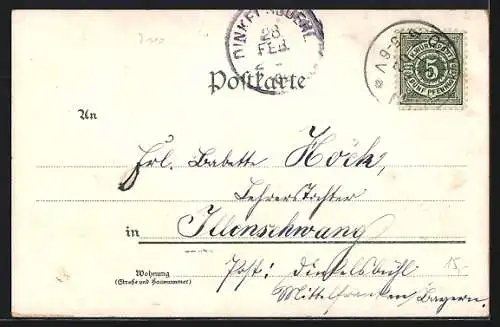 DINKELSBUEHL
28
FEB
5-6V
5
FÜNF PFENNIG
Postkarte
An
Frl. Babette Höck,
Lehrerstochter
in Illenschwang
Wohnung
(Straße und Hausnummer)
Post: Dinkelsbühl
15,-
Mittelfranken / Bayern.